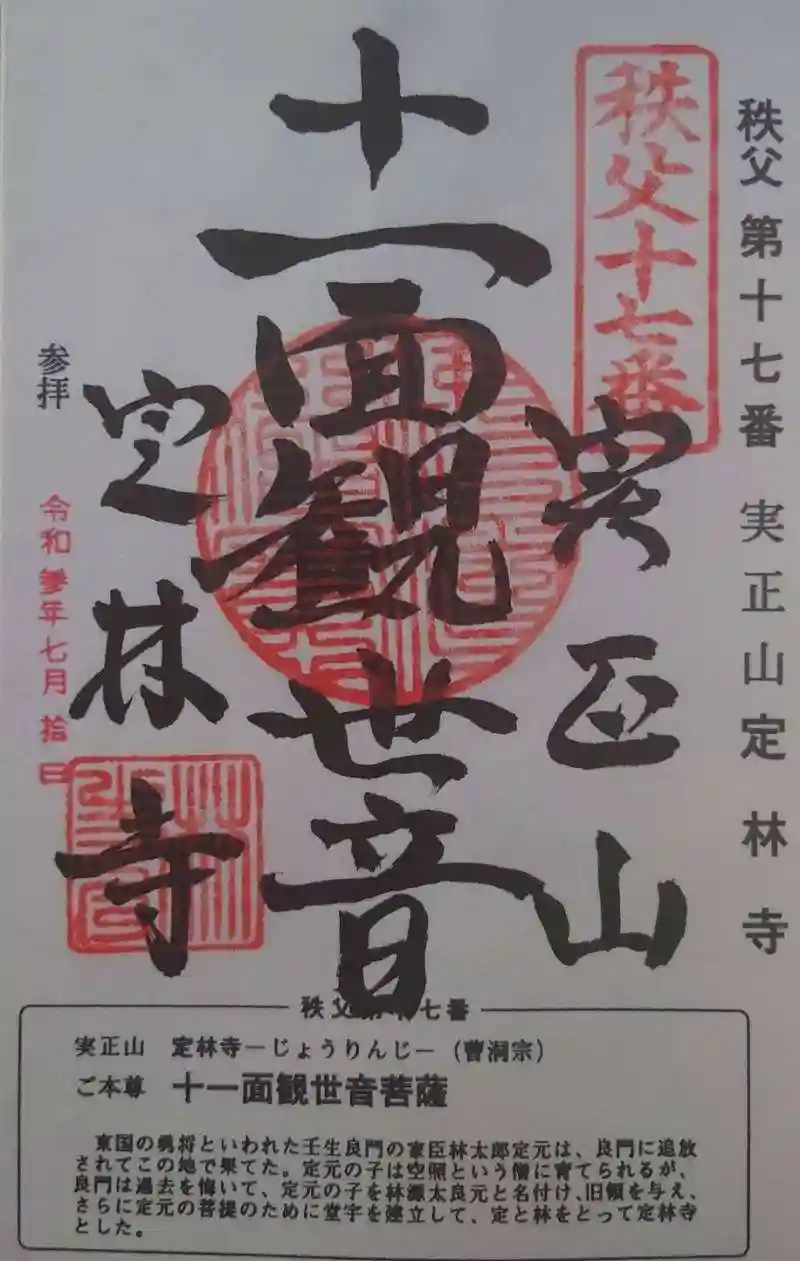 秩父 第十七番 実正山 定林寺
秩父十七番
実正山
十一面観世音
定林寺
参拝
令和参年七月拾日
秩父第十七番
実正山 定林寺－じょうりんじ－（曹洞宗）
ご本尊 十一面観世音菩薩
東国の勇将といわれた壬生良門の家臣林太郎定元は、良門に追放
されてこの地で果てた。定元の子は空照という僧に育てられるが、
良門は過去を悔いて、定元の子を林源太良元と名付け、旧領を与え、
さらに定元の菩提のために堂宇を建立して、定と林をとって定林寺
とした。